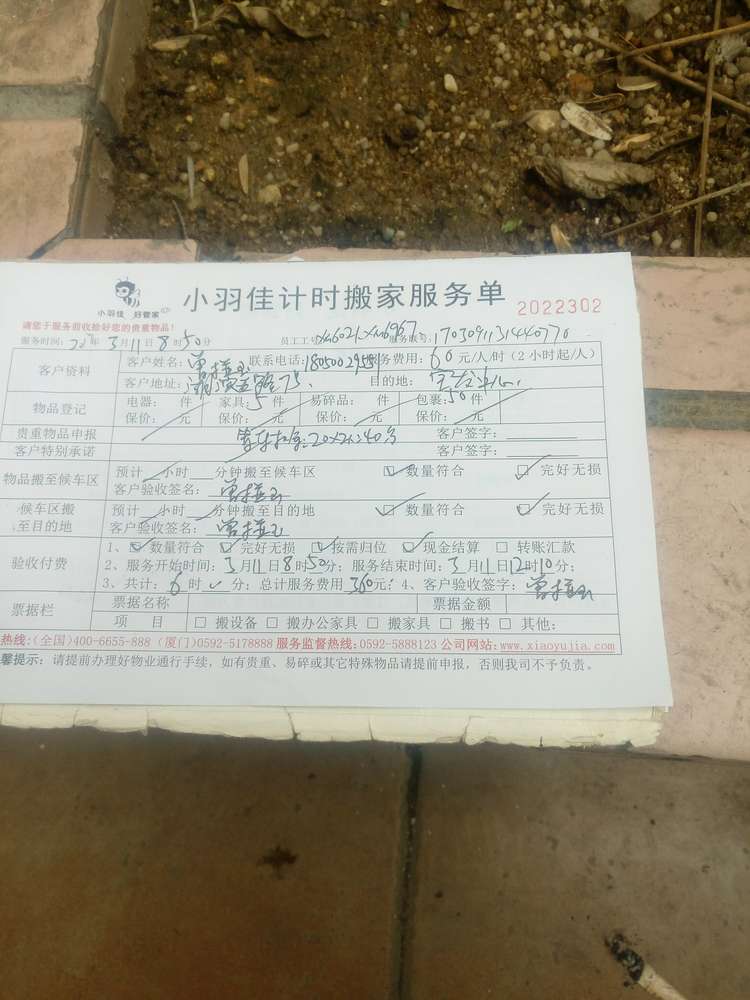 小羽佳 好管家
小羽佳计时搬家服务单
2022302
请您于服务前收拾好您的贵重物品!
服务时间: 年 3月11日8时50分 员工工号: 服务账号: 170309131440770
客户资料
客户姓名: 联系电话: 服务费用: 60元/人/时(2小时起/人)
客户地址: 目的地:
物品登记
电器: 件 家具: 5件 易碎品: 件 包裹: 50件
保价: 元 保价: 元 保价: 元 保价: 元
贵重物品申报 客户签字:
客户特别承诺 客户签字:
物品搬至候车区
预计 小时 分钟搬至候车区 数量符合 完好无损
客户验收签名:
候车区搬至目的地
预计 小时 分钟搬至目的地 数量符合 完好无损
客户验收签名:
验收付费
1、 数量符合 完好无损 按需归位 现金结算 转账汇款
2、服务开始时间: 3月11日8时50分; 服务结束时间: 3月11日12时10分;
3、共计: 6时 分; 总计服务费用360元; 4、客户验收签字:
票据栏
票据名称 票据金额
项 目 搬设备 搬办公家具 搬家具 搬书 其他:
热线:(全国)400-6655-888 (厦门)0592-5178888 服务监督热线:0592-5888123 公司网站:www.xiaoyujia.com
馨提示: 请提前办理好物业通行手续, 如有贵重、易碎或其它特殊物品请提前申报, 否则我司不予负责。